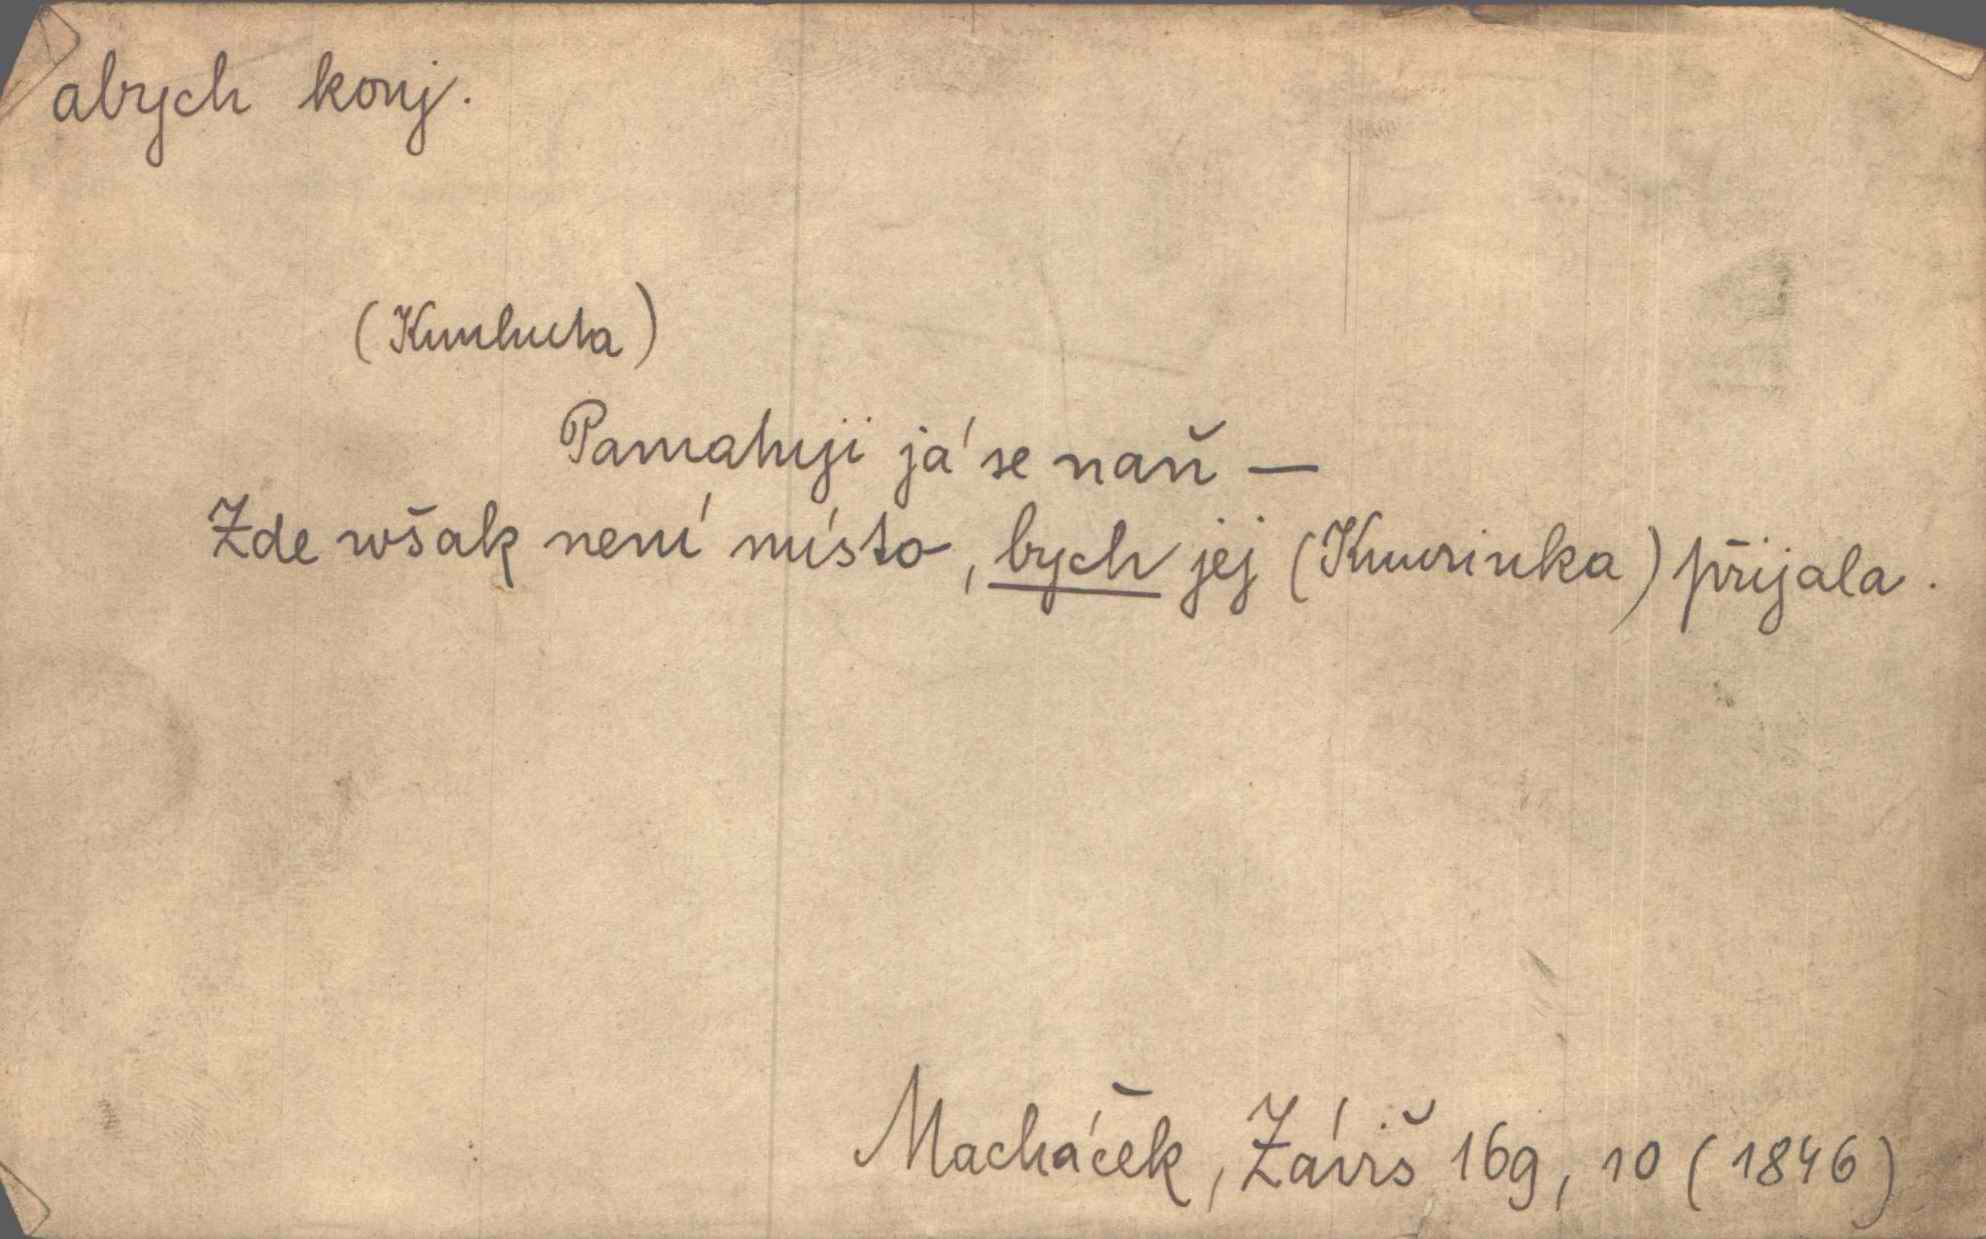 abych konj.
(Kunhuta)
Pamatuji já se naň —
Zde wšak není místo, bych jej (Kuurinka) přijala.
Macháček, Záviš 169, 10 (1846)